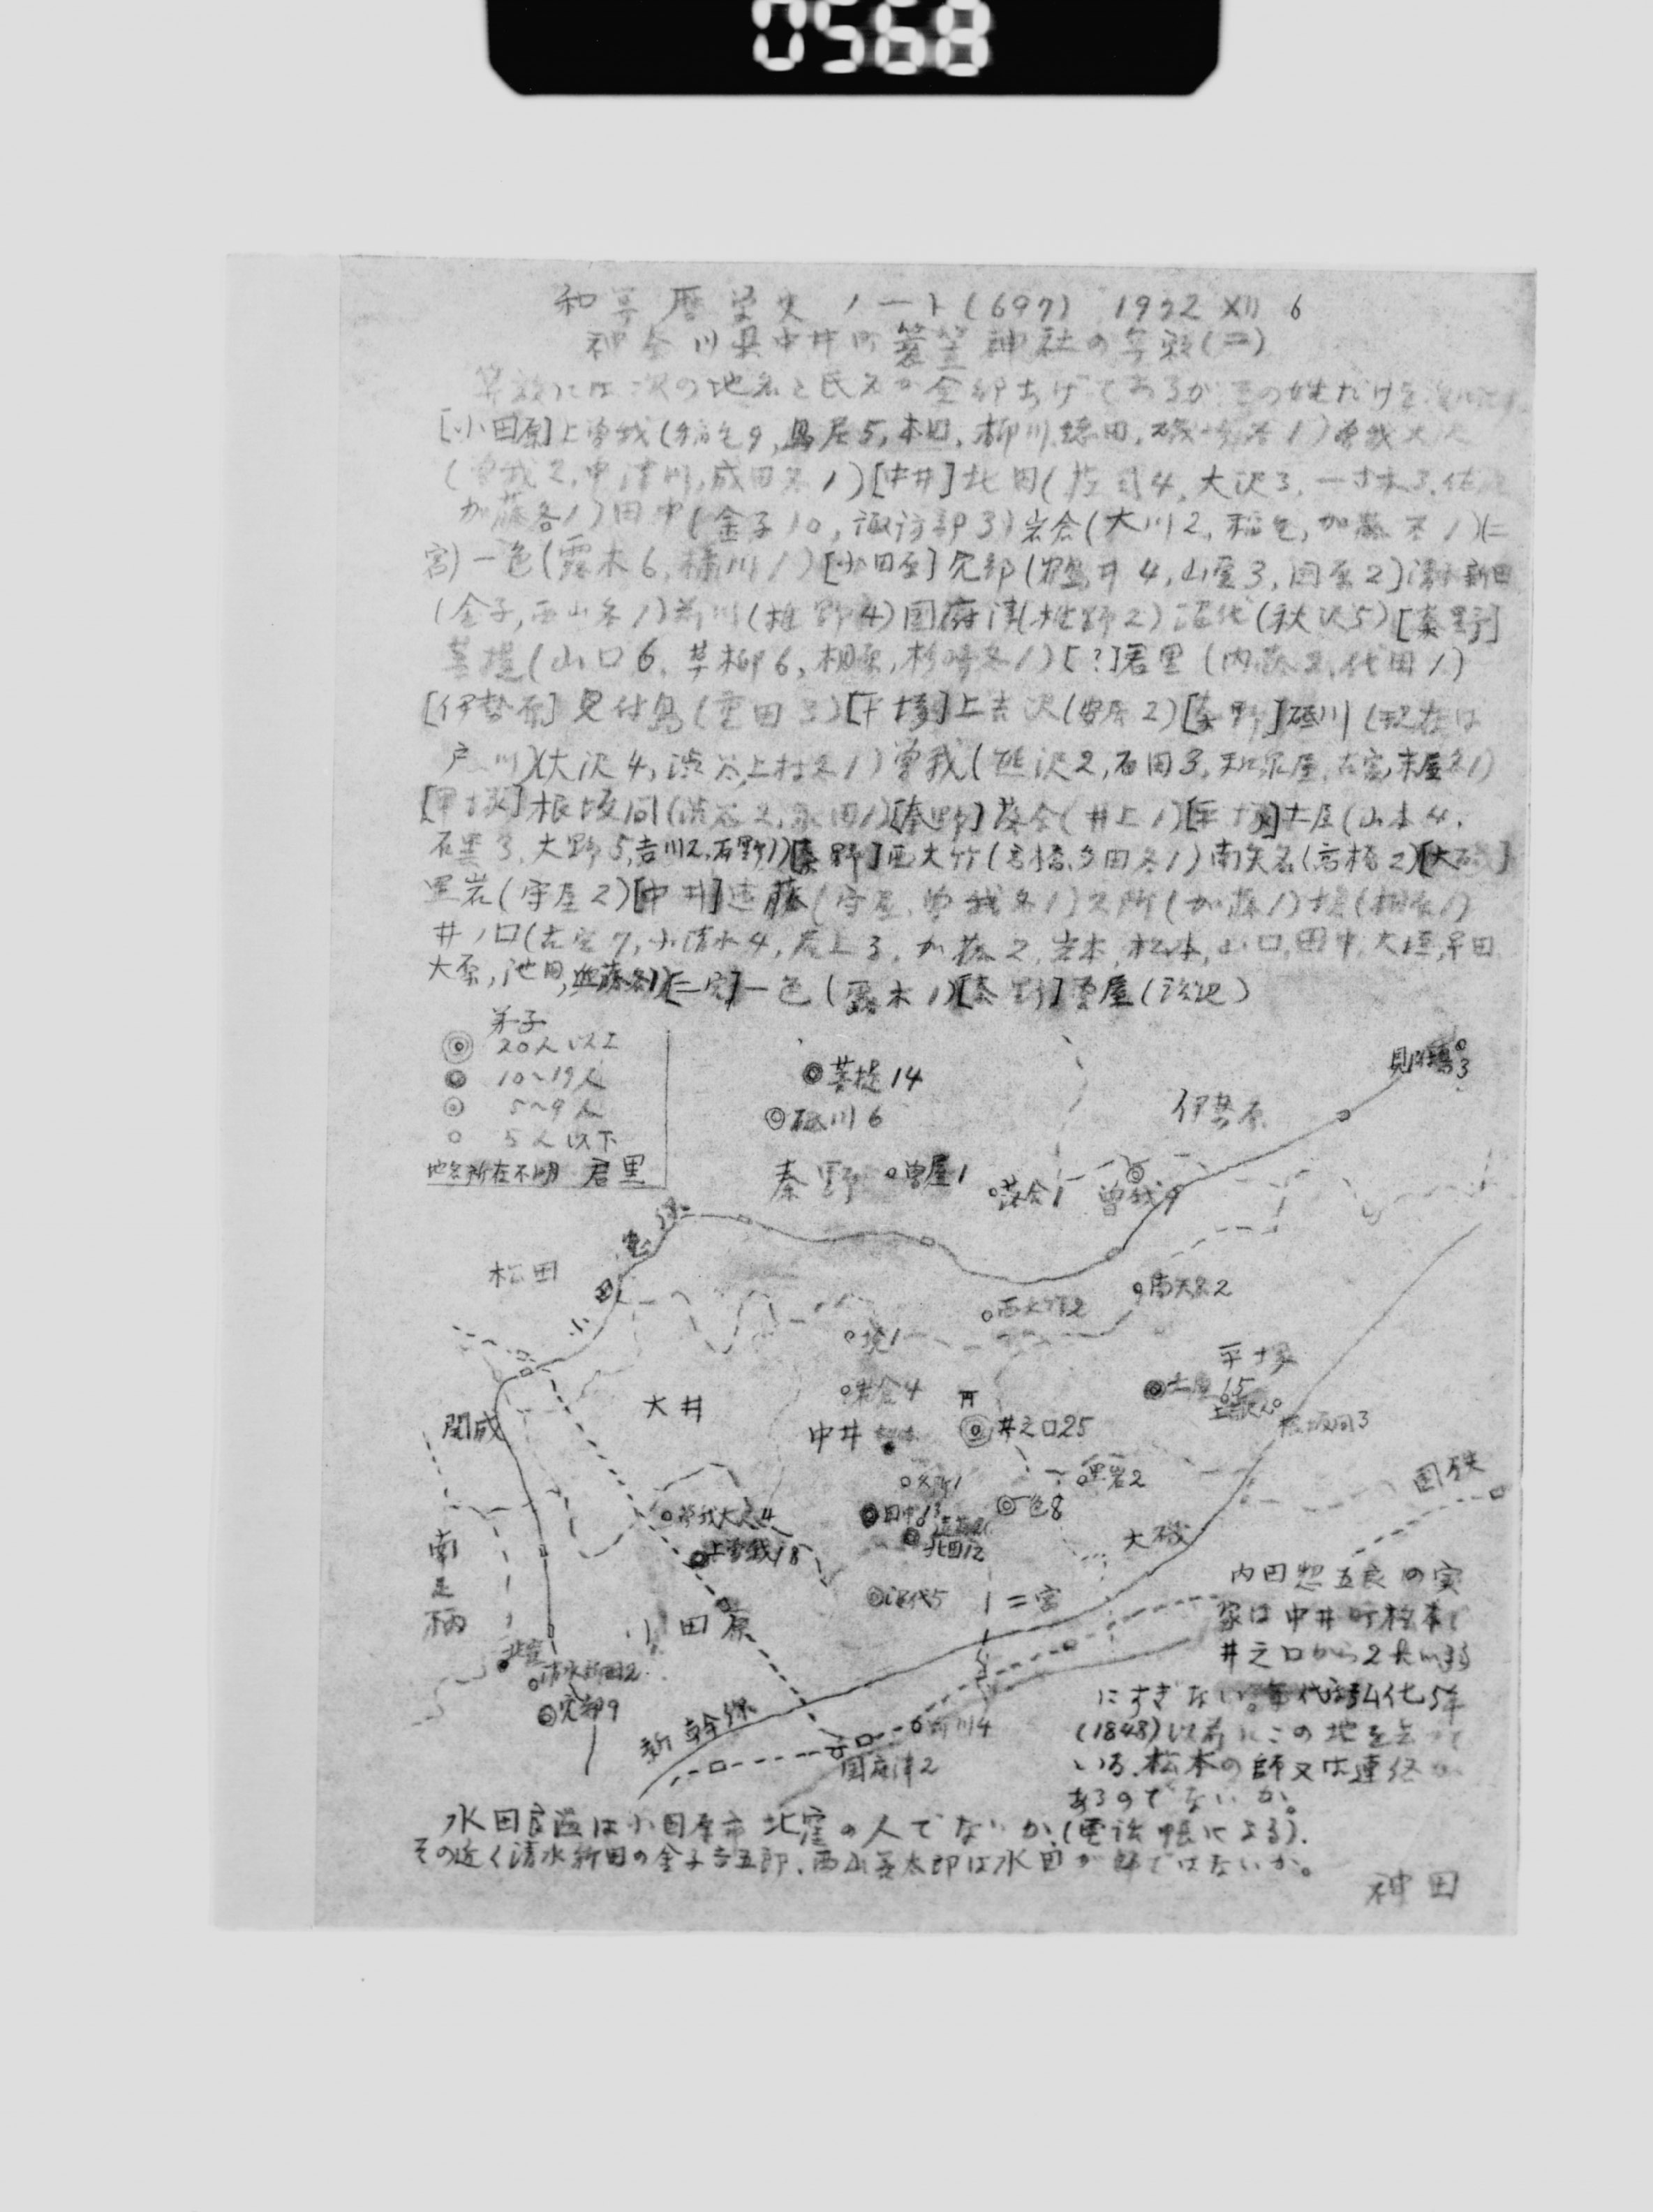 0568
和算暦学史 ノート(697) 1972 XII 6
神奈川県中井町蓑笠神社の算額(二)
算額には次の地名と氏名が全部あげてあるがその姓だけを
[小田原]上曽我(稲毛9,鳥居5,本田,柳川,徳田,磯崎各1)曽我大沢
(曽我2,中津川,成田各1)[中井]北田(庄司4,大沢3,一寸木3,佐
加藤各1)田中(金子10,諏訪部3)岩倉(大川2,稲毛,加藤各1)[二
宮]一色(露木6,橘川1)[小田原]穴部(鶴井4,山室3,田原2)清水新田
(金子,西山各1)前川(椎野4)国府津(椎野2)沼代(秋沢5)[秦野]
菩提(山口6,草柳6,相原,杉崎各1)[?]君里(内藤2,代田1)
[伊勢原]見付島(重田3)[平塚]上吉沢(安居2)[秦野]砥川(現在は
戸川)(大沢4,渋谷,上村各1)曽我(延沢2,石田3,和泉屋,古宮,末屋各1)
[平塚]根坂間(渋谷2,永田1)[秦野]落合(井上1)[平塚]土屋(山本4,
石黒3,大野5,吉川2,石野1)[秦野]西大竹(高橋,多田各1)南矢名(高橋2)[大磯]
黒岩(守屋2)[中井]遠藤(守屋,曽我各1)久所(加藤1)境(相原1)
井ノ口(古宮7,小清水4,尾上3,加藤2,岩本,松本,山口,田中,大垣,早田,
大原,池田,近藤各1)[二宮]一色(露木1)[秦野]曽屋(諏訪)
弟子
20人以上
10~19人
5~9人
5人以下
地名所在不明 君里
菩提14
砥川6
秦野
曽屋1
落合1
曽我9
伊勢原
見付島3
松田
西大竹2
南矢名2
境1
平塚
土屋15
上吉沢2
根坂間3
岩倉4
大井
中井
井之口25
開成
久所1
黒岩2
国鉄
一色8
田中13
遠藤2
北田12
曽我大沢4
上曽我18
大磯
南足柄
沼代5
二宮
小田原
北窪
清水新田2
穴部9
新幹線
前川4
国府津2
内田惣五良の実
家は中井町松本で
井之口から2kmほど
にすぎない。年代は弘化5年
(1848)以前にこの地を去って
いる.松本の師又は連絡が
あるのでないか。
水田良温は小田原市北窪の人でないか(電話帳による).
その近く清水新田の金子吉五郎.西山善太郎は水田が師ではないか。
神田